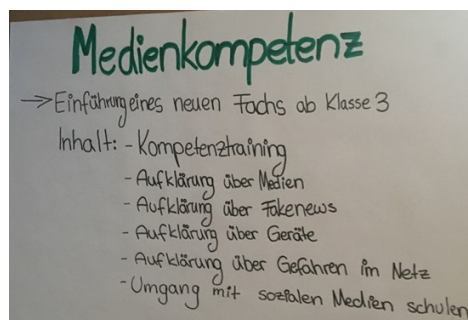 Medienkompetenz
→ Einführung eines neuen Fachs ab Klasse 3
Inhalt: - Kompetenztraining
- Aufklärung über Medien
- Aufklärung über Fakenews
- Aufklärung über Geräte
- Aufklärung über Gefahren im Netz
- Umgang mit sozialen Medien schulen